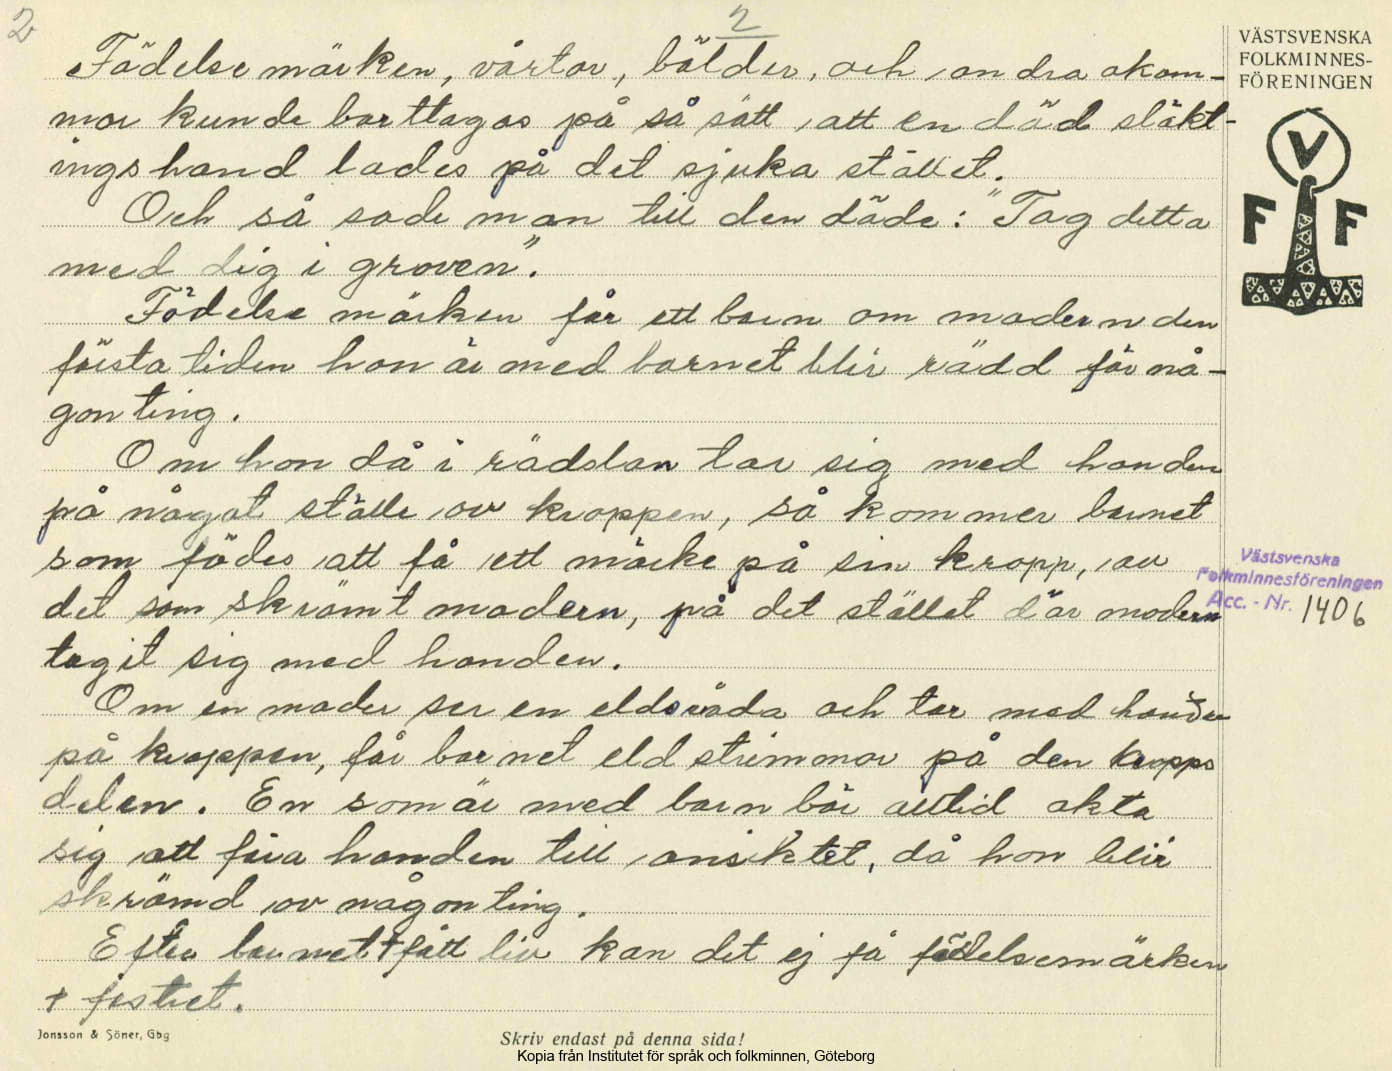 2
2
Födelsemärken, vårtor, bölder, och andra åkom-
mor kunde borttagas på så sätt att en död släkt-
ings hand lades på det sjuka stället.
Och så sade man till den döde: "Tag detta
med dig i graven".
Födelsemärken får ett barn om modern den
första tiden hon är med barnet blir rädd för nå-
gonting.
Om hon då i rädslan tar sig med handen
på något ställe av kroppen, så kommer barnet
som födes att få ett märke på sin kropp, av
det som skrämt modern, på det stället där modern
tagit sig med handen.
Om en moder ser en eldsvåda och tar med handen
på kroppen, får barnet eldstrimmor på den kropps
delen. En som är med barn bör alltid akta
sig att föra handen till ansiktet, då hon blir
skrämd av någonting.
Efter barnet + fått liv kan det ej få födelsemärken
+ fostret.
VÄSTSVENSKA
FOLKMINNES-
FÖRENINGEN
V
F F
Västsvenska
Folkminnesföreningen
Acc. - Nr. 1406
Jonsson & Söner, Gbg
Skriv endast på denna sida!
Kopia från Institutet för språk och folkminnen, Göteborg